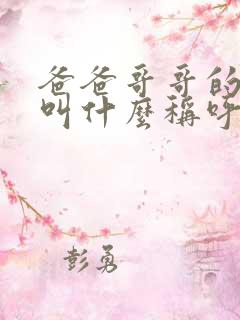 爸爸哥哥的
叫什麼稱呼
彭勇